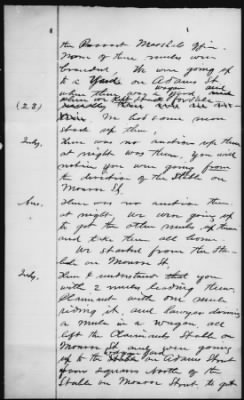 8
the Provost Marshals Office.
None of these mules were
branded. We were going up
to a Yard on Adams St
wagon and
when there was a good
(28)
We had some more
stock up there,
Inty. There was no auction up there
at night was there, you will
notice you were going from
the direction of the Stable on
Monroe St.
Ans. There was no auction there
at night, We were going up
to get the other mules up there
and take them all home.
We started from the Sta-
ble on Monroe St
Inty. Then I understand that you
with 2 mules leading them,
Claimant with one mule
riding it, and Lawyer driving
a mule in a wagon, all
left the Claimants Stable on
Monroe St, and were going
up to the Yard on Adams Street
squares North of the
Stable on Monroe Street to get